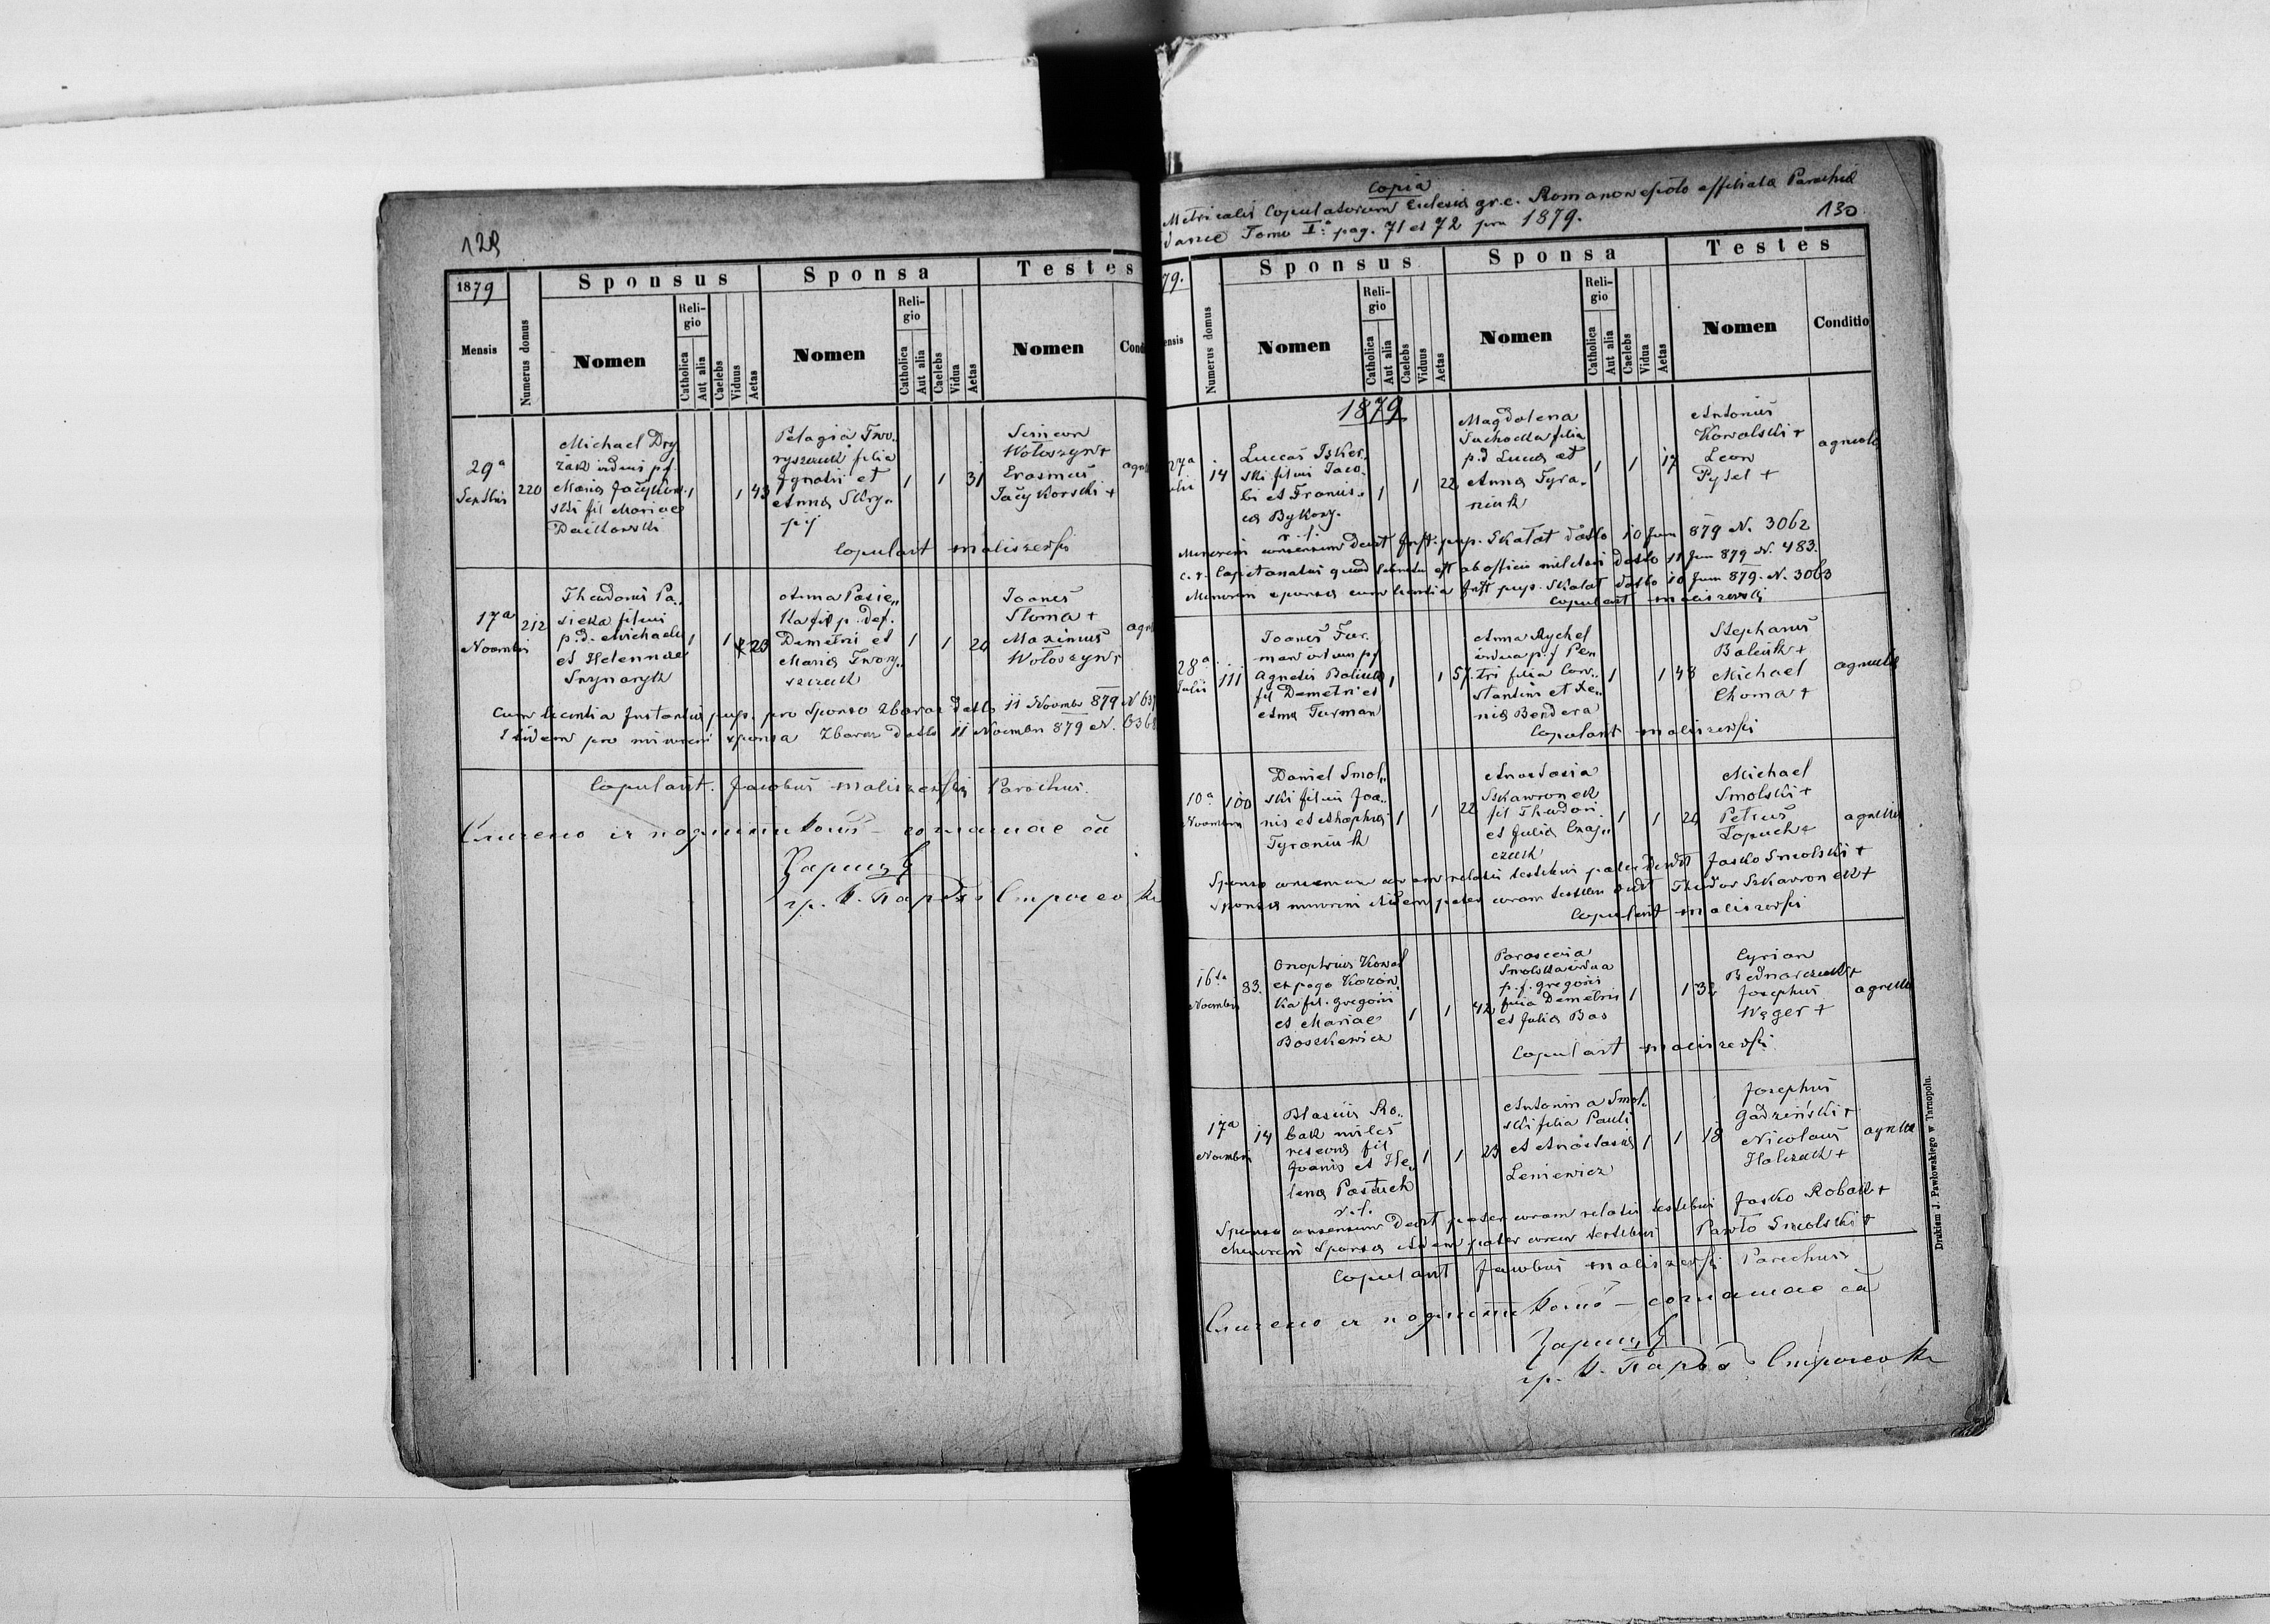 129
1879
Mensis
Numerus domus
Sponsus
Nomen
Religio
Catholica
Aut alia
Caelebs
Viduus
Aetas
Sponsa
Nomen
Religio
Catholica
Aut alia
Caelebs
Vidua
Aetas
Testes
Nomen
Cond
29a
220
Michael Dry
żak
Maria
ski fil Mariae
1
1
43
Pelagia Two..
ryszczuk filia
Ignatii et
Anna Skry..
pij
1
1
31
Simeon
Wołoszyn +
Erasmus
Jacykorski +
Copulavit Maliszewski
17a
Novembris
212
Theodorus Pa..
sieka filius
p.d. Michaelis
et Helennae
1
1
23
Anna Pasie..
ka fil p. def.
Demetrii et
Maria Twory..
szczuk
1
1
20
Joanes
Słoma +
Maximus
Wołoszyn +
Cum licentia Instantia pup. pro Sponso Zbaraz datto 11 Novembr 879 N 63
pro minoreni sponsa Zbaraz datto 11 Novembr 879 N. 6368
Copulavit. Jacobus Maliszewski Parochus.
Copia
Metricalis Copulatorum Eclesia gr.c. Romanowesioło affiliata Parochia
Tomo I: pag. 71 et 72 pro 1879.
130
79.
ensis
Numerus domus
Sponsus
Nomen
Religio
Catholica
Aut alia
Caelebs
Viduus
Aetas
Sponsa
Nomen
Religio
Catholica
Aut alia
Caelebs
Vidua
Aetas
Testes
Nomen
Conditio
1879
27a
14
Luccas Isker..
ski filius Jaco..
bi et Francis..
ca
1
1
22
Magdalena
Suchocka filia
p.d Luca et
Anna Tyra..
niuk
1
1
17
Antonius
Kowalski +
Leon
Pytel +
Minoreni consensum dedit Inst. pup. Skałat datto 10 Juni 879 N. 3062
c.r. Capitanatus quod ab officio militari datto 11 Jun 879 N. 483.
Minoreni sponsa cum licentia Inst pup. Skałat datto 10 Jun 879. N. 3063
Copulavit Maliszewski
28a
Julii
111
Joanes Fur..
man viduus p f
Agnetis Baliuk
fil Demetri et
Anna Furman
1
1
57
Anna Rychel
vidua p. f Pen
tri filia Con..
stantini et Xe..
nia Bendera
1
1
43
Stephanus
Baliuk +
Michael
Choma +
Copulavit Maliszewski
10a
Novembris
100
Daniel Smol..
ski filius Joa..
nis et Agaphia
Tyraniuk
1
1
22
Anastasia
Szkawronek
fil Theodori
et Julia Czaj..
czuk
1
1
20
Michael
Smolski +
Petrus
Łopuch +
Sponso consensum coram relatis testibus pater dedit Jasko Smolski +
Sponsa minoreni itidem pater coram testibus dedit Theodor Szkawronek +
Copulavit Maliszewski
16ta
Novembris
83.
Onophrius Kowal
et pago Kozin..
ka fil. Gregorii
et Mariae
Boszkewicz
1
1
42
Parascevia
Smolska vidua
p. f. Gregorii
filia Demetrii
et Julia Bas
1
1
32
Cyrian
Bednarczuk +
Josephus
Węger +
Copulavit Maliszewski
17a
Novembris
14
Blasius Ro..
bak miles
reserva fil
Joanis et He..
lena Pastuch
1
1
23
Antonina Smol..
ski filia Pauli
et Anastasia
Leniewicz
1
1
18
Josephus
Gadzinski +
Nicolaus
Halczuk +
Sponso consensum dedit pater coram relatis testibus Jasko Robak +
Minoreni Sponsa itidem pater coram testibus Pawło Smolski +
Copulavit Jacobus Maliszewski Parochus
Drukiem J. Pawłowskiego w Tarnopolu.